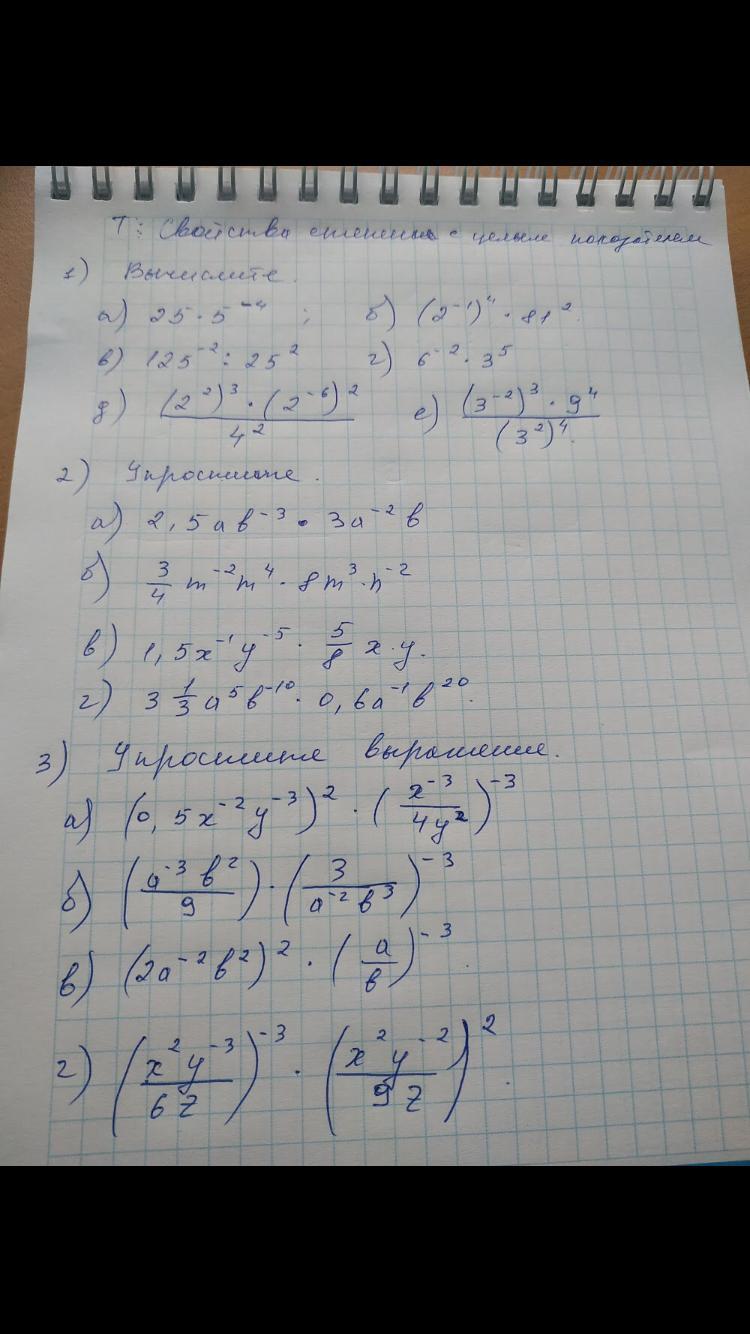 Т: Свойства степени с целым показателем
1) Вычислите.
а) 25 · 5⁻⁴ ; б) (2⁻¹)⁴ · 81².
в) 125⁻² : 25² г) 6⁻² · 3⁵
д) (2²)³ · (2⁻⁶)² / 4² е) (3⁻²)³ · 9⁴ / (3²)⁴.
2) Упростите.
а) 2,5ав⁻³ · 3а⁻²в
б) 3/4 m⁻²m⁴ · 8m³ · n⁻²
в) 1,5x⁻¹y⁻⁵ · 5/8 x · y.
г) 3 1/3 а⁵в⁻¹⁰ · 0,6а⁻¹в²⁰.
3) Упростите выражение.
а) (0,5x⁻²y⁻³)² · (x⁻³ / 4y²)⁻³
б) (а⁻³в² / 9) · (3 / а⁻²в³)⁻³
в) (2а⁻²в²)² · (а / в)⁻³.
г) (x²y⁻³ / 6z)⁻³ · (x²y⁻² / 9z)².